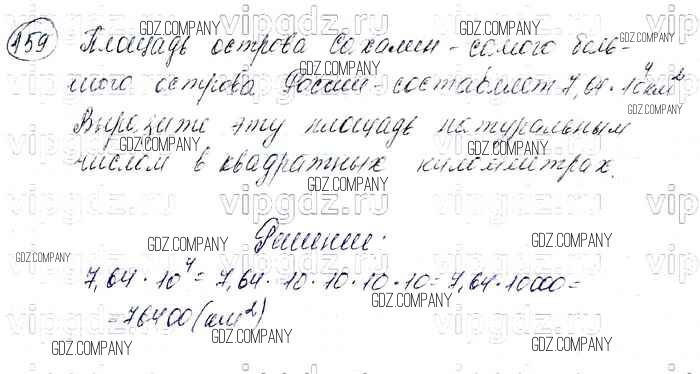 159 Площадь острова Сахалин - самого боль-
шого острова России - составляет 7,64 · 10⁴ км²
Выразите эту площадь натуральным
числом в квадратных километрах.
Решение:
7,64 · 10⁴ = 7,64 · 10 · 10 · 10 · 10 = 7,64 · 10000 =
= 76400 (км²)
GDZ.COMPANY
vipgdz.ru